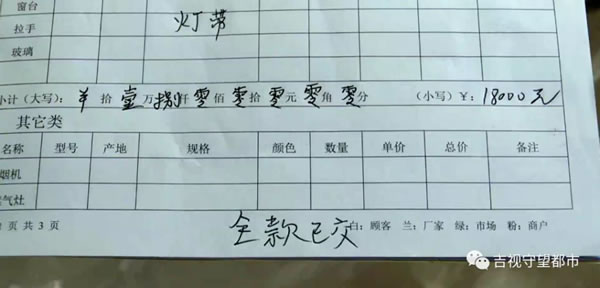 窗台
拉手 灯带
玻璃
小计(大写): ¥ 拾 壹 万 捌 仟 零 佰 零 拾 零 元 零 角 零 分 (小写)¥: 18000元
其它类
名称 型号 产地 规格 颜色 数量 单价 总价 备注
烟机
气灶
页 共 3 页 白: 顾客 兰: 厂家 绿: 市场 粉: 商户
全款已交
吉视守望都市